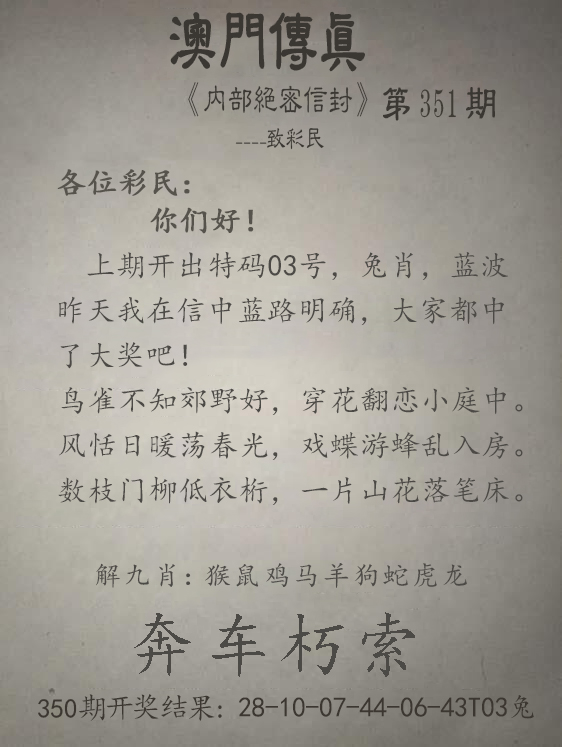 澳門傳真
《内部絕密信封》第351期
----致彩民
各位彩民：
你们好！
上期开出特码03号，兔肖，蓝波
昨天我在信中蓝路明确，大家都中
了大奖吧！
鸟雀不知郊野好，穿花翻恋小庭中。
风恬日暖荡春光，戏蝶游蜂乱入房。
数枝门柳低衣桁，一片山花落笔床。
解九肖：猴鼠鸡马羊狗蛇虎龙
奔车朽索
350期开奖结果：28-10-07-44-06-43T03兔